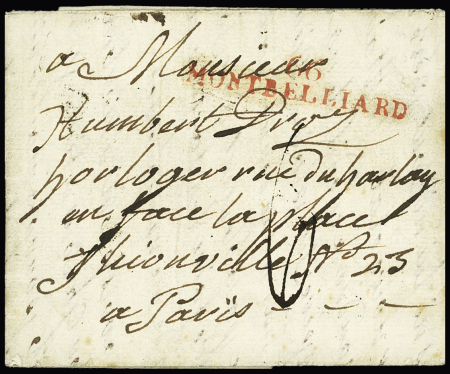 a Monsieur
MONTBELLIARD
Humbert Droz
horloger rue du harlay
en face la place
thionville N° 23
a Paris